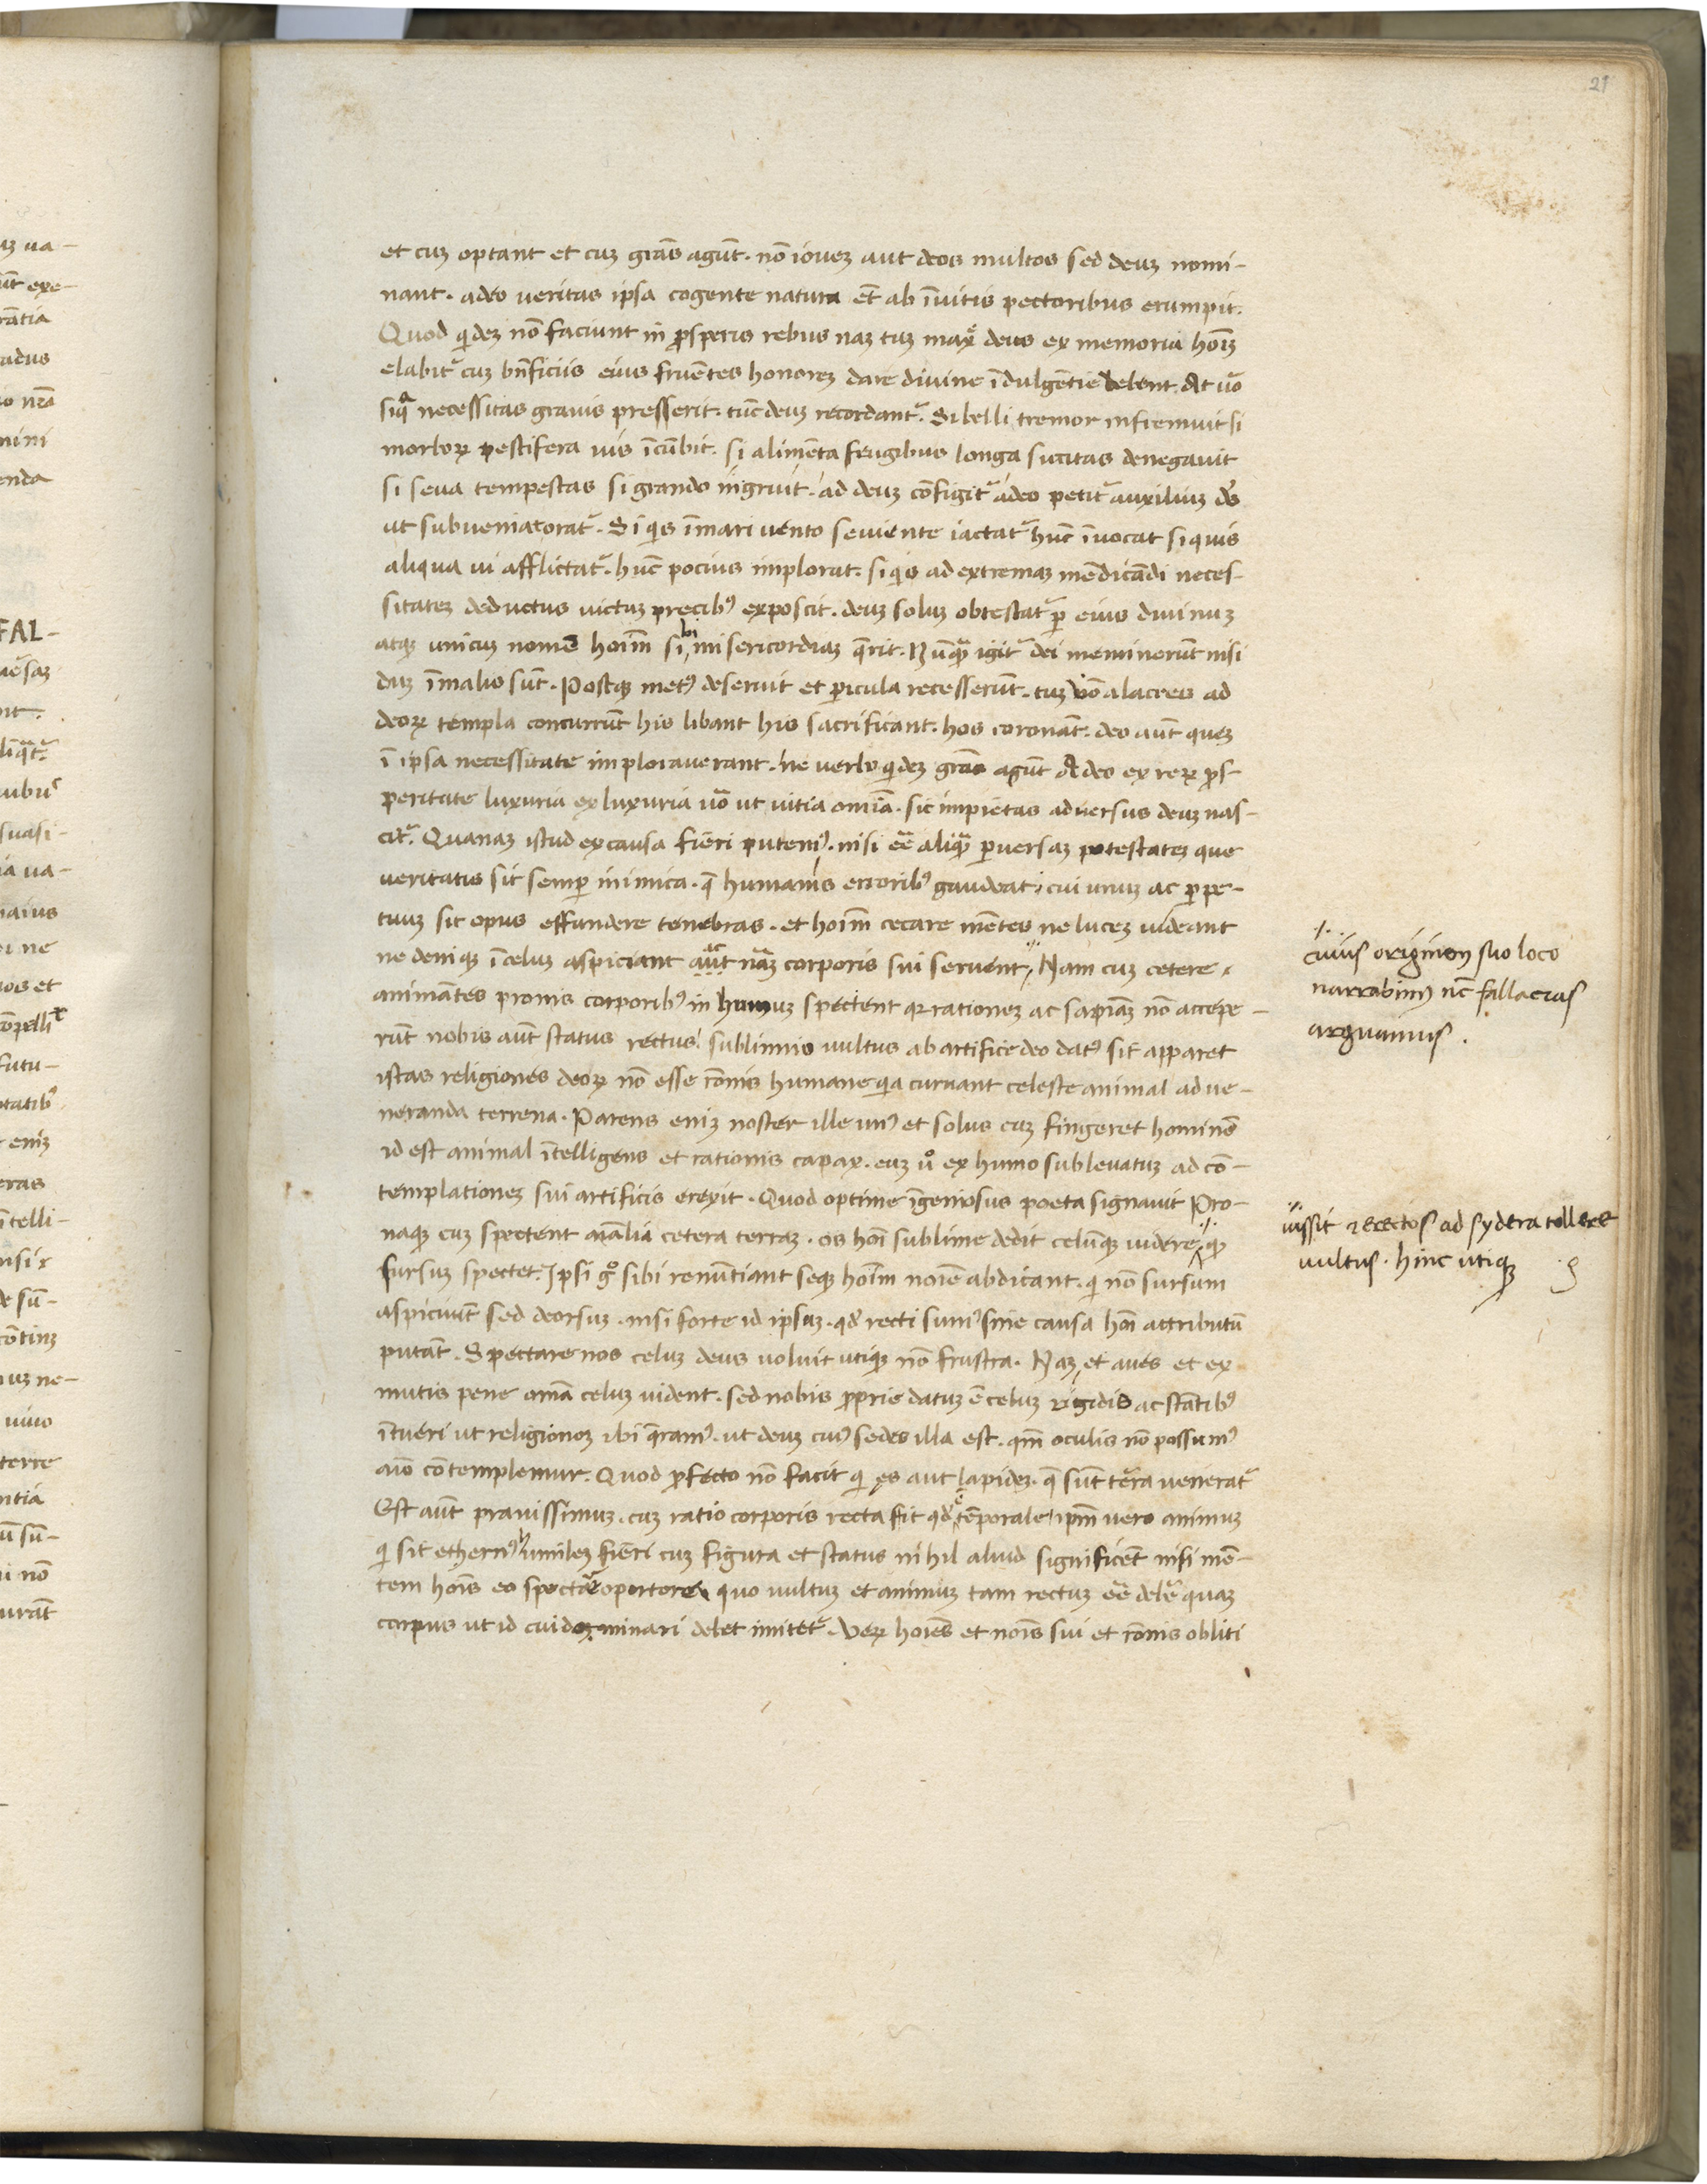 21
et cuʒ optant et cuʒ grãs agũt. nõ ioueʒ aut deos multos sed deuʒ nomi-
nant. adeo ueritas ipsa cogente natura et̃ ab ĩuitis pectoribus erumpit.
Quod qideʒ nõ faciunt in ꝓsperis rebus naʒ tuʒ maxe deus ex memoria hoĩʒ
elabit᷑ cuʒ bñficiis eius fruẽtes honoreʒ dare diuine ĩdulgẽtie debent. At uõ
siqa necessitas grauis presserit. tũc deuʒ recordant᷑. Si belli tremor infremuit si
morboꝝ pestifera uis ĩcũbit. si alimẽta frugibus longa siccitas denegauit
si seua tempestas si grando ingruit. ad deuʒ cõfigit᷑ adeo petit᷑ auxiliuʒ ds̃
ut subueniat orat᷑. Si qis ĩmari uento seuiente iactat᷑ hũc ĩuocat si quis
aliqua ui afflictat᷑. hũc pocius implorat. si qis ad extremaʒ mẽdicãdi neces-
sitateʒ deductus uictuʒ precibꝰ exposcit. deuʒ soluʒ obtestat᷑ ꝑ eius diuinuʒ
atqʒ unicuʒ nomẽ hoĩm sibi misericordiaʒ qrit. Nũqʒ igit᷑ dei meminerũt nisi
duʒ ĩmalis sũt. Postqʒ metꝰ deseruit et ꝑicula recesserũt. tuʒ uõ alacres ad
deoꝝ templa concurrũt his libant his sacrificant. hos coronãt. deo aũt queʒ
ĩ ipsa necessitate implorauerant. ne uerbo qideʒ grãs agũt Adeo ex reꝝ ꝓs-
ꝑeritate luxuria ex luxuria uõ ut uitia omĩa. sic impietas aduersus deuʒ nas-
cit᷑. Quanaʒ istud ex causa fieri putemꝰ. nisi eẽ aliqã ꝑuersaʒ potestateʒ que
ueritatis sit semꝑ inimica. q̃ humanis erroribꝰ gaudeat. cui unuʒ ac ꝑpe-
tuuʒ sit opus effundere tenebras. et hoĩm cecare mẽtes ne luceʒ uideant
ne deniqʒ ĩ celuʒ aspiciant aũt nãʒ corporis sui seruent, Nam cuʒ cetere
animãtes pronis corporibꝰ in humuʒ spectent qꝛ rationeʒ ac sapiãʒ nõ accepe-
rũt nobis aũt status rectus sublimis uultus ab artifice deo datꝰ sit apparet
istas religiones deoꝝ nõ esse rõnis humane qia curuant celeste animal ad ue-
neranda terrena. Parens eniʒ noster ille unꝰ et solus cuʒ fingeret hominẽ
id est animal ĩtelligens et rationis capax. euʒ uo ex humo subleuatuʒ ad cõ-
templationeʒ sui artificis erexit. Quod optime ĩgeniosus poeta signauit Pro-
naqʒ cuʒ spectent aĩalia cetera terraʒ. os hoĩ sublime dedit celũqʒ uidere, qꝫ
sursuʒ spectet. Ipsi go sibi renũtiant seqʒ hoĩm noĩe abdicant. qi nõ sursum
aspiciũt sed deorsuʒ. nisi forte id ipsuʒ. qd̃ recti sumꝰ sine causa hoĩ attributũ
putãt. Spectare nos celuʒ deus uoluit utiqʒ nõ frustra. Naʒ et aues et ex
mutis pene omĩa celuʒ uident. sed nobis ꝓprie datuʒ ẽ celuʒ rigidis ac stãtibꝰ
ĩtueri ut religioneʒ ibi qramꝰ. ut deuʒ cuiꝰ sedes illa est. qm̃ oculis nõ possumꝰ
aĩo cõtemplemur. Quod ꝓfecto nõ facit qi es aut lapideʒ. q̃ sũt terra uenerat᷑
Est aũt prauissimuʒ. cuʒ ratio corporis recta sit qd̃ ẽ tẽporale ipm̃ uero animuʒ
qi sit ethernꝰ humileʒ fieri cuʒ figura et status nihil aliud significẽt nisi mẽ-
tem hoĩs eo spectare oportere quo uultuʒ et animuʒ tam rectuʒ eẽ debe᷑ quaʒ
corpus ut id cui dominari debet imitet᷑. Ueꝝ hoĩes et noĩs sui et rõnis obliti
cuius originem suo loco
narrabimꝰ nc̃ fallacias
arguamus.
iussit & erectos ad sydera tollere
uultus. hinc utiqʒ